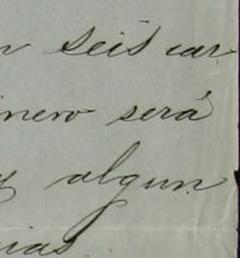 n seis car
inero será
y algun
nias